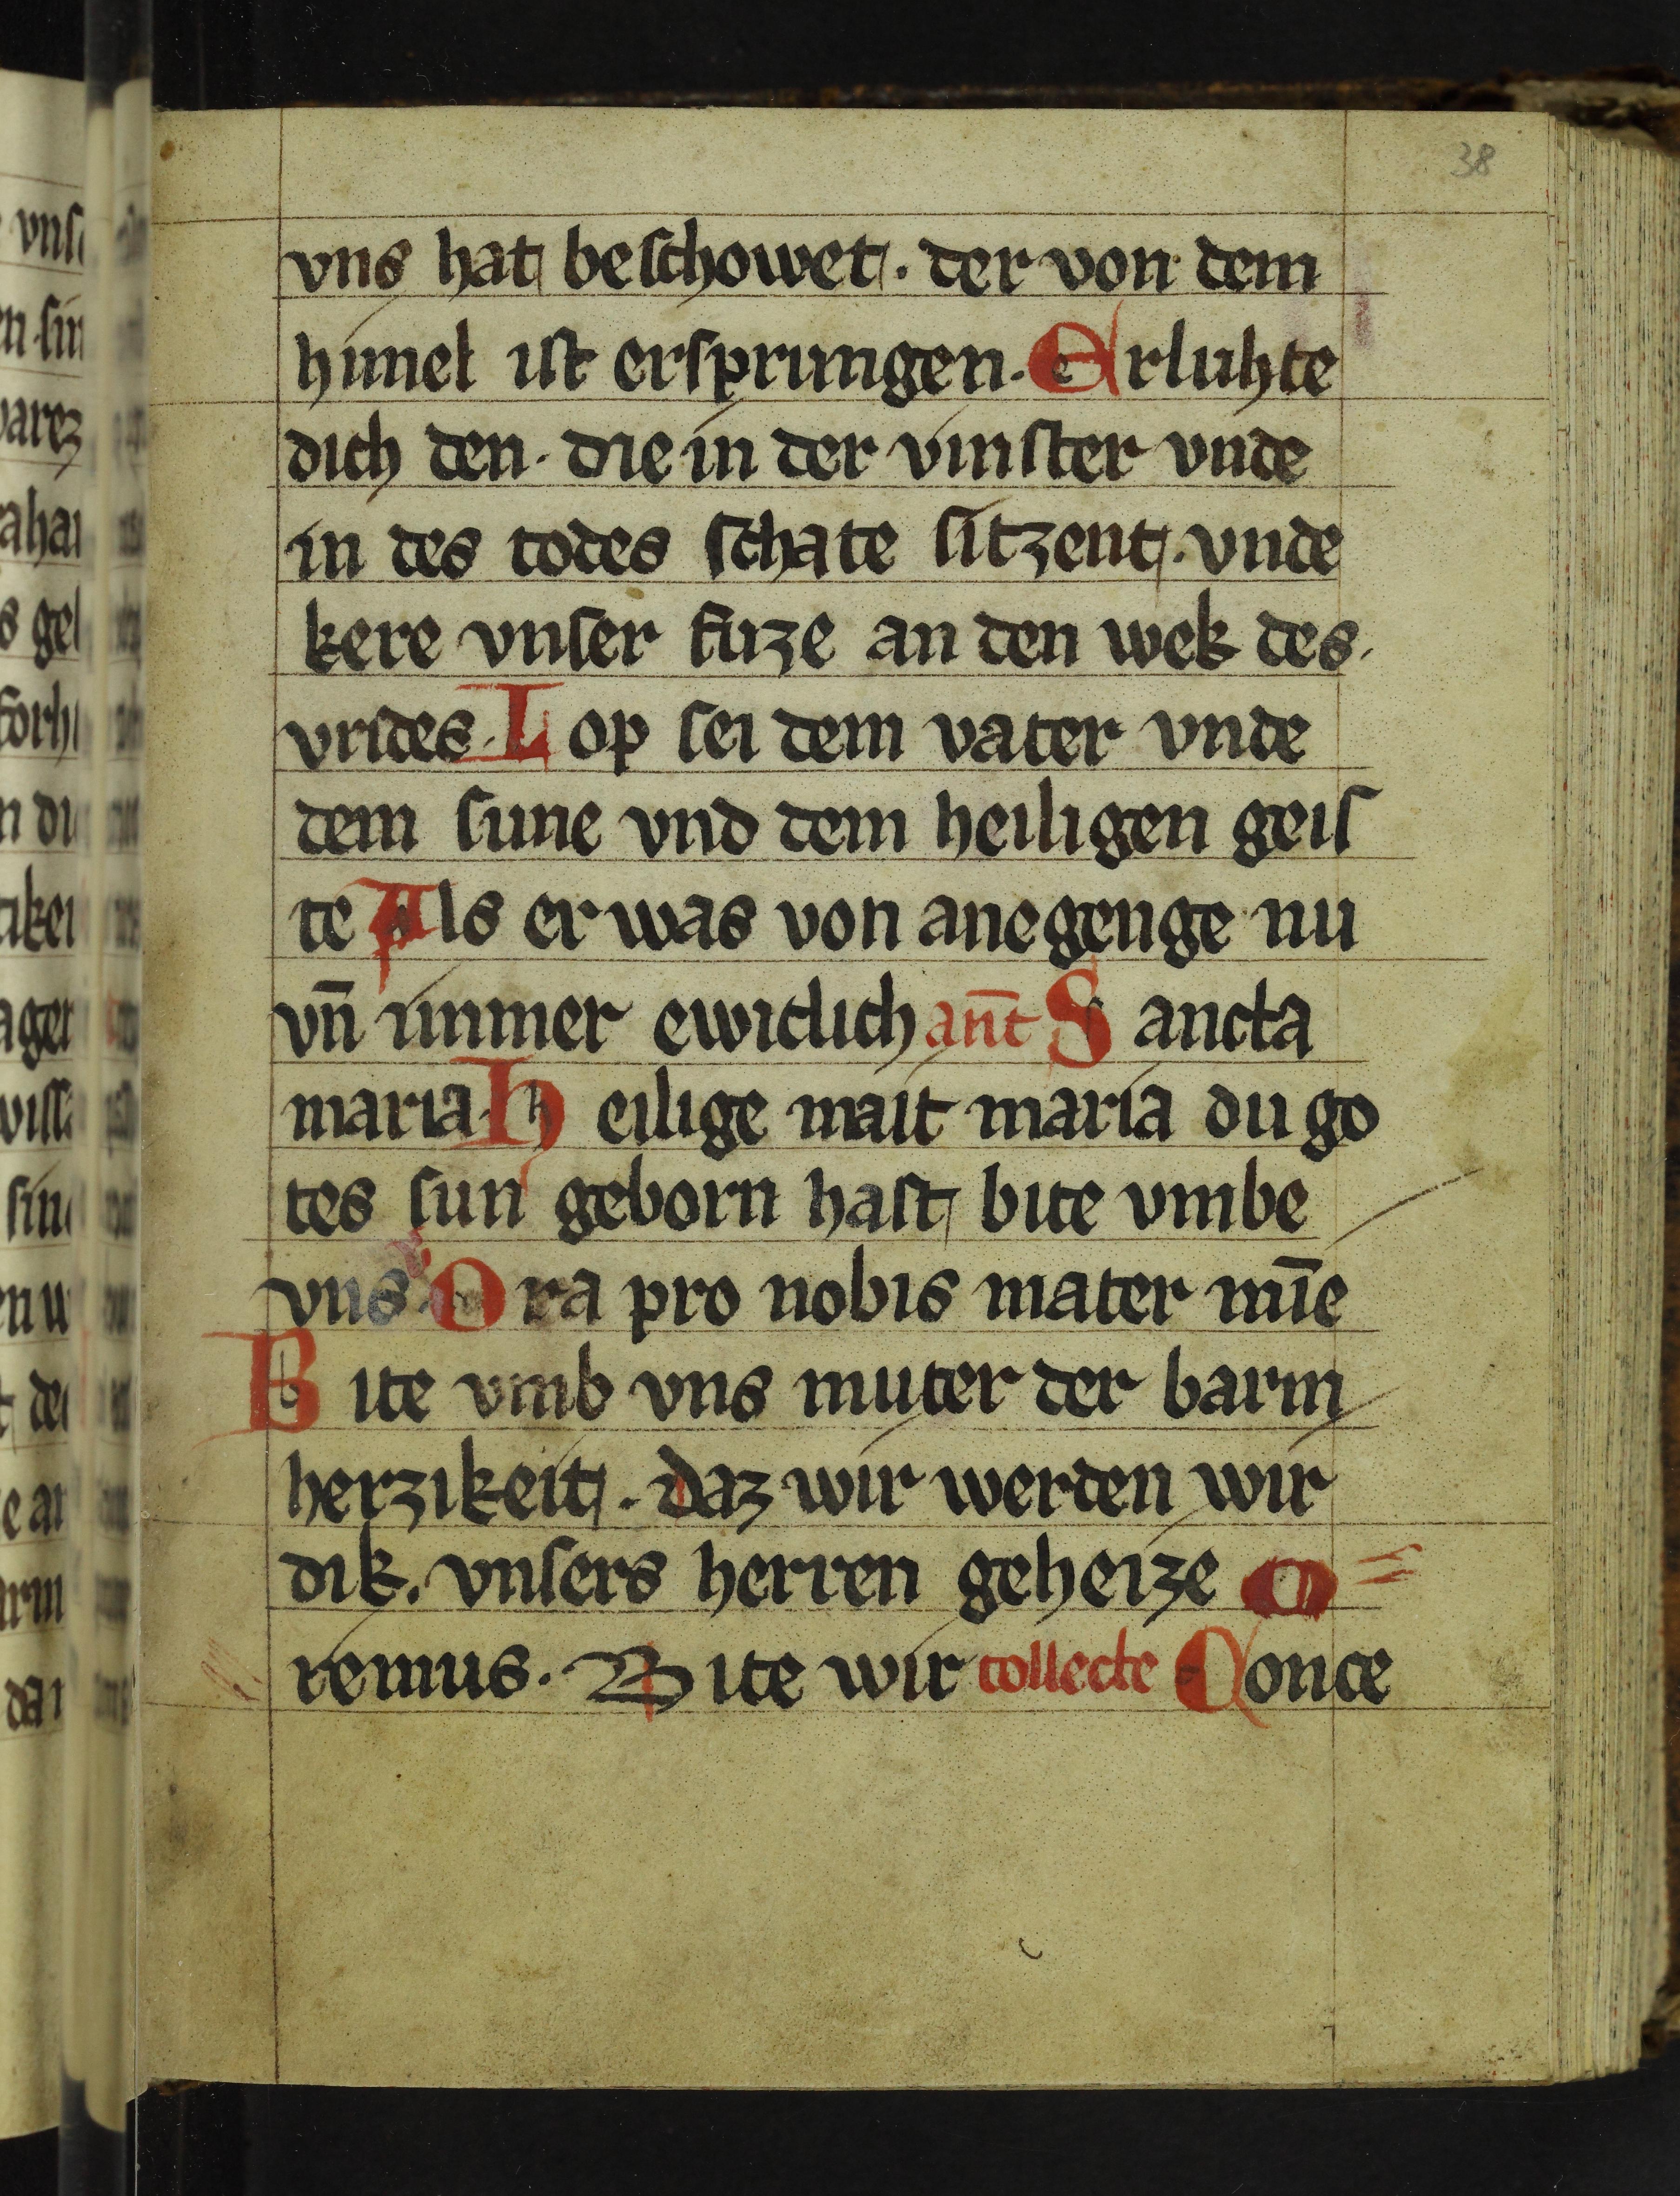 38
vns hat beschowet. der von dem
himel ist ersprungen. Erluhte
dich den. die in der vinster vnde
in des todes schate sitzent. vnde
kere vnser fuze an den wek des.
vrides. Lop sei dem vater vnde
dem sune vnd dem heiligen geis
te Als er was von anegenge nu
vn̄ immer ewiclich an̄t Sancta
maria. Heilige mait maria du go
tes sun geborn hast bite vmbe
vns. Ora pro nobis mater mīe
Bite vmb vns muter der barm
herzikeit. daz wir werden wir
dik. vnsers herren geheize O
remus. Bite wir collecte Conce